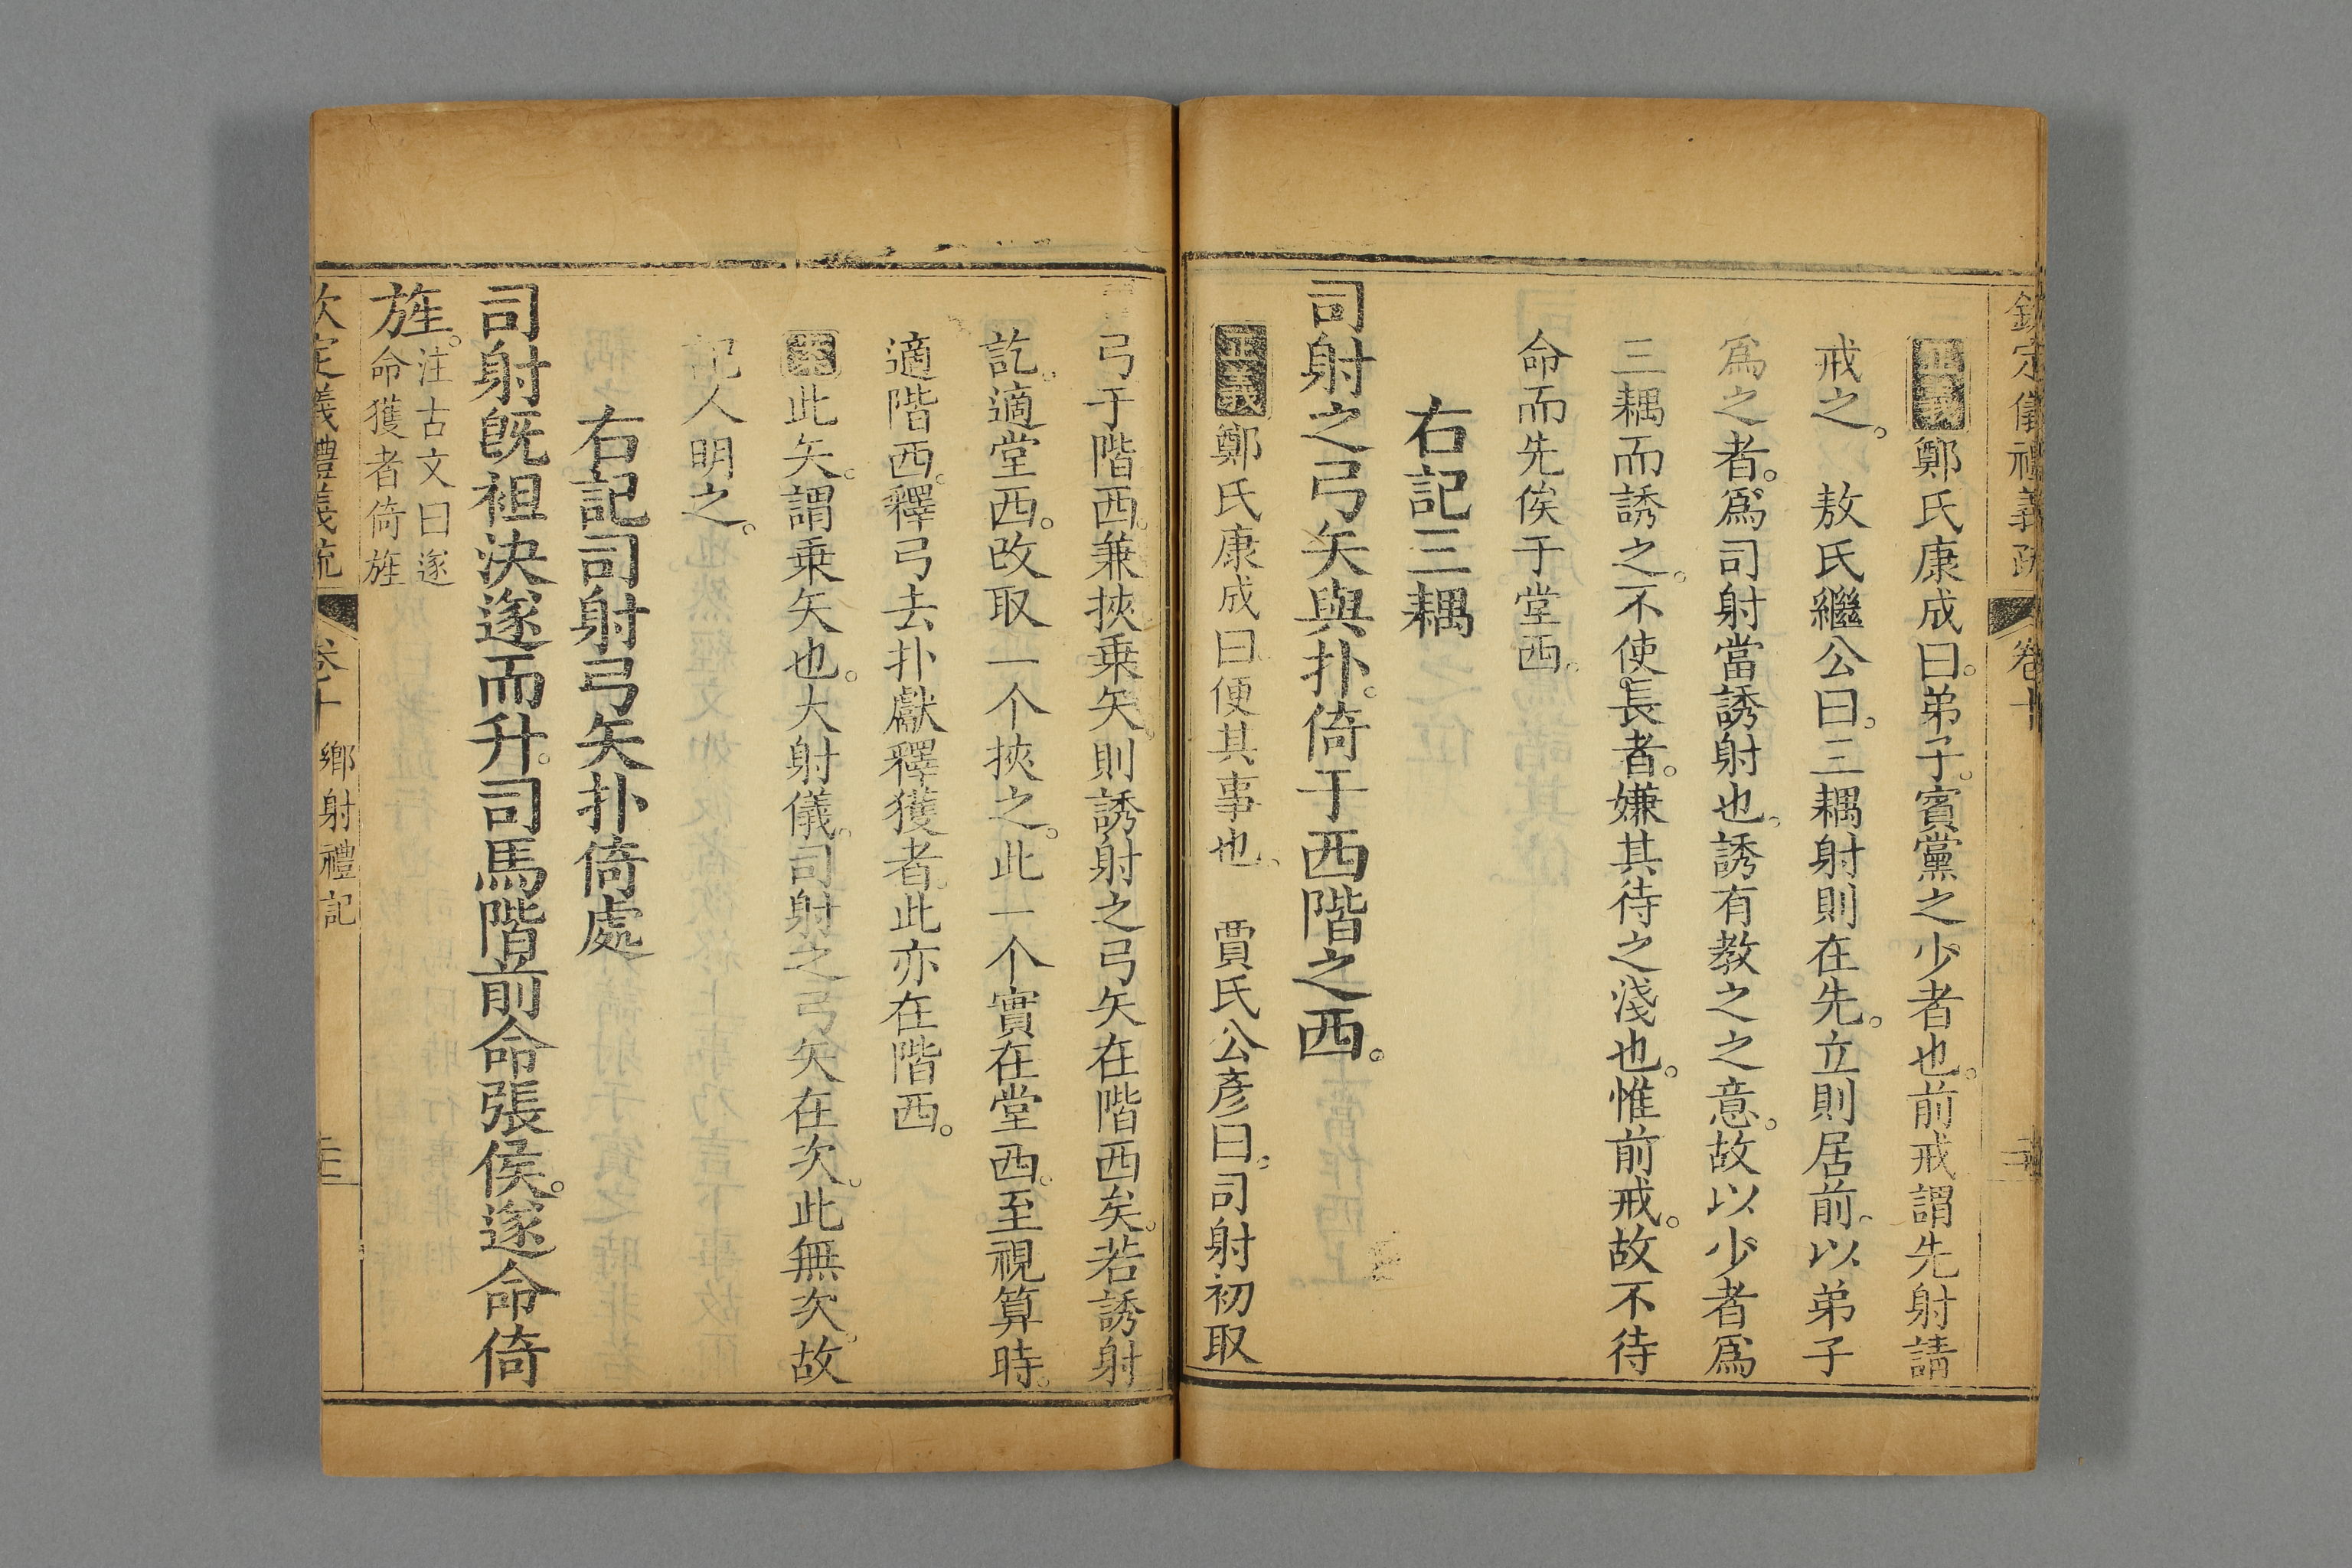 欽定儀禮義疏 卷十
正義鄭氏康成曰。弟子。賓黨之少者也。前戒謂先射請
戒之。 敖氏繼公曰。三耦射則在先。立則居前。以弟子
爲之者。爲司射當誘射也。誘有教之之意。故以少者爲
三耦而誘之。不使長者。嫌其待之淺也。惟前戒。故不待
命而先俟于堂西。
右記三耦
司射之弓矢與扑。倚于西階之西。
正義鄭氏康成曰。便其事也。 賈氏公彥曰。司射初取
弓于階西。兼挾乗矢。則誘射之弓矢在階西矣。若誘射
訖。適堂西。改取一个挾之。此一个實在堂西。至視算時。
適階西。釋弓去扑。獻釋獲者。此亦在階西。
此矢。謂乗矢也。大射儀。司射之弓矢在次。此無次。故
記人明之。
右記司射弓矢扑倚處
司射旣袒決遂而升。司馬階前命張侯。遂命倚
旌。注古文曰遂
命獲者倚旌
欽定儀禮義疏 卷十 鄉射禮記